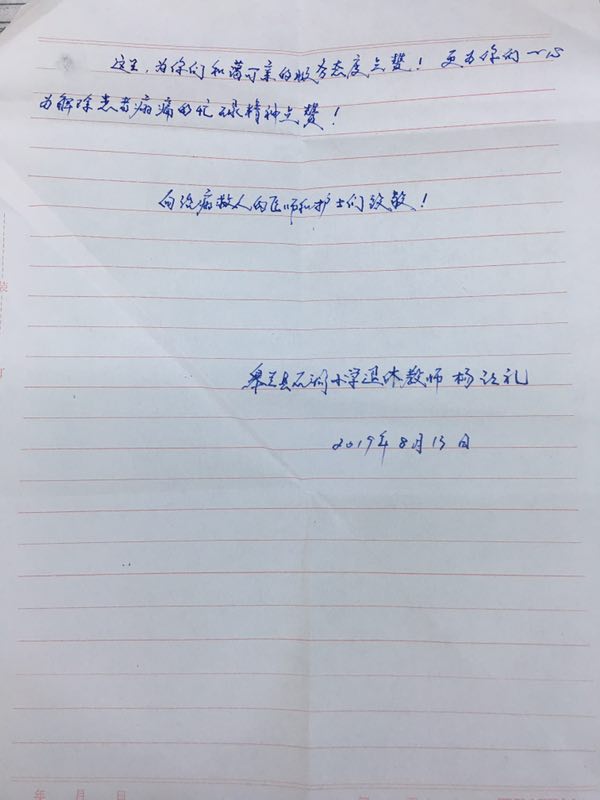 这里，为你们和蔼可亲的服务态度点赞！更为你们一心
为解除患者病痛的忙碌精神点赞！
向治病救人的医师和护士们致敬！
皋兰县石洞小学退休教师 杨礼
2019年8月13日
装
订
年 月 日